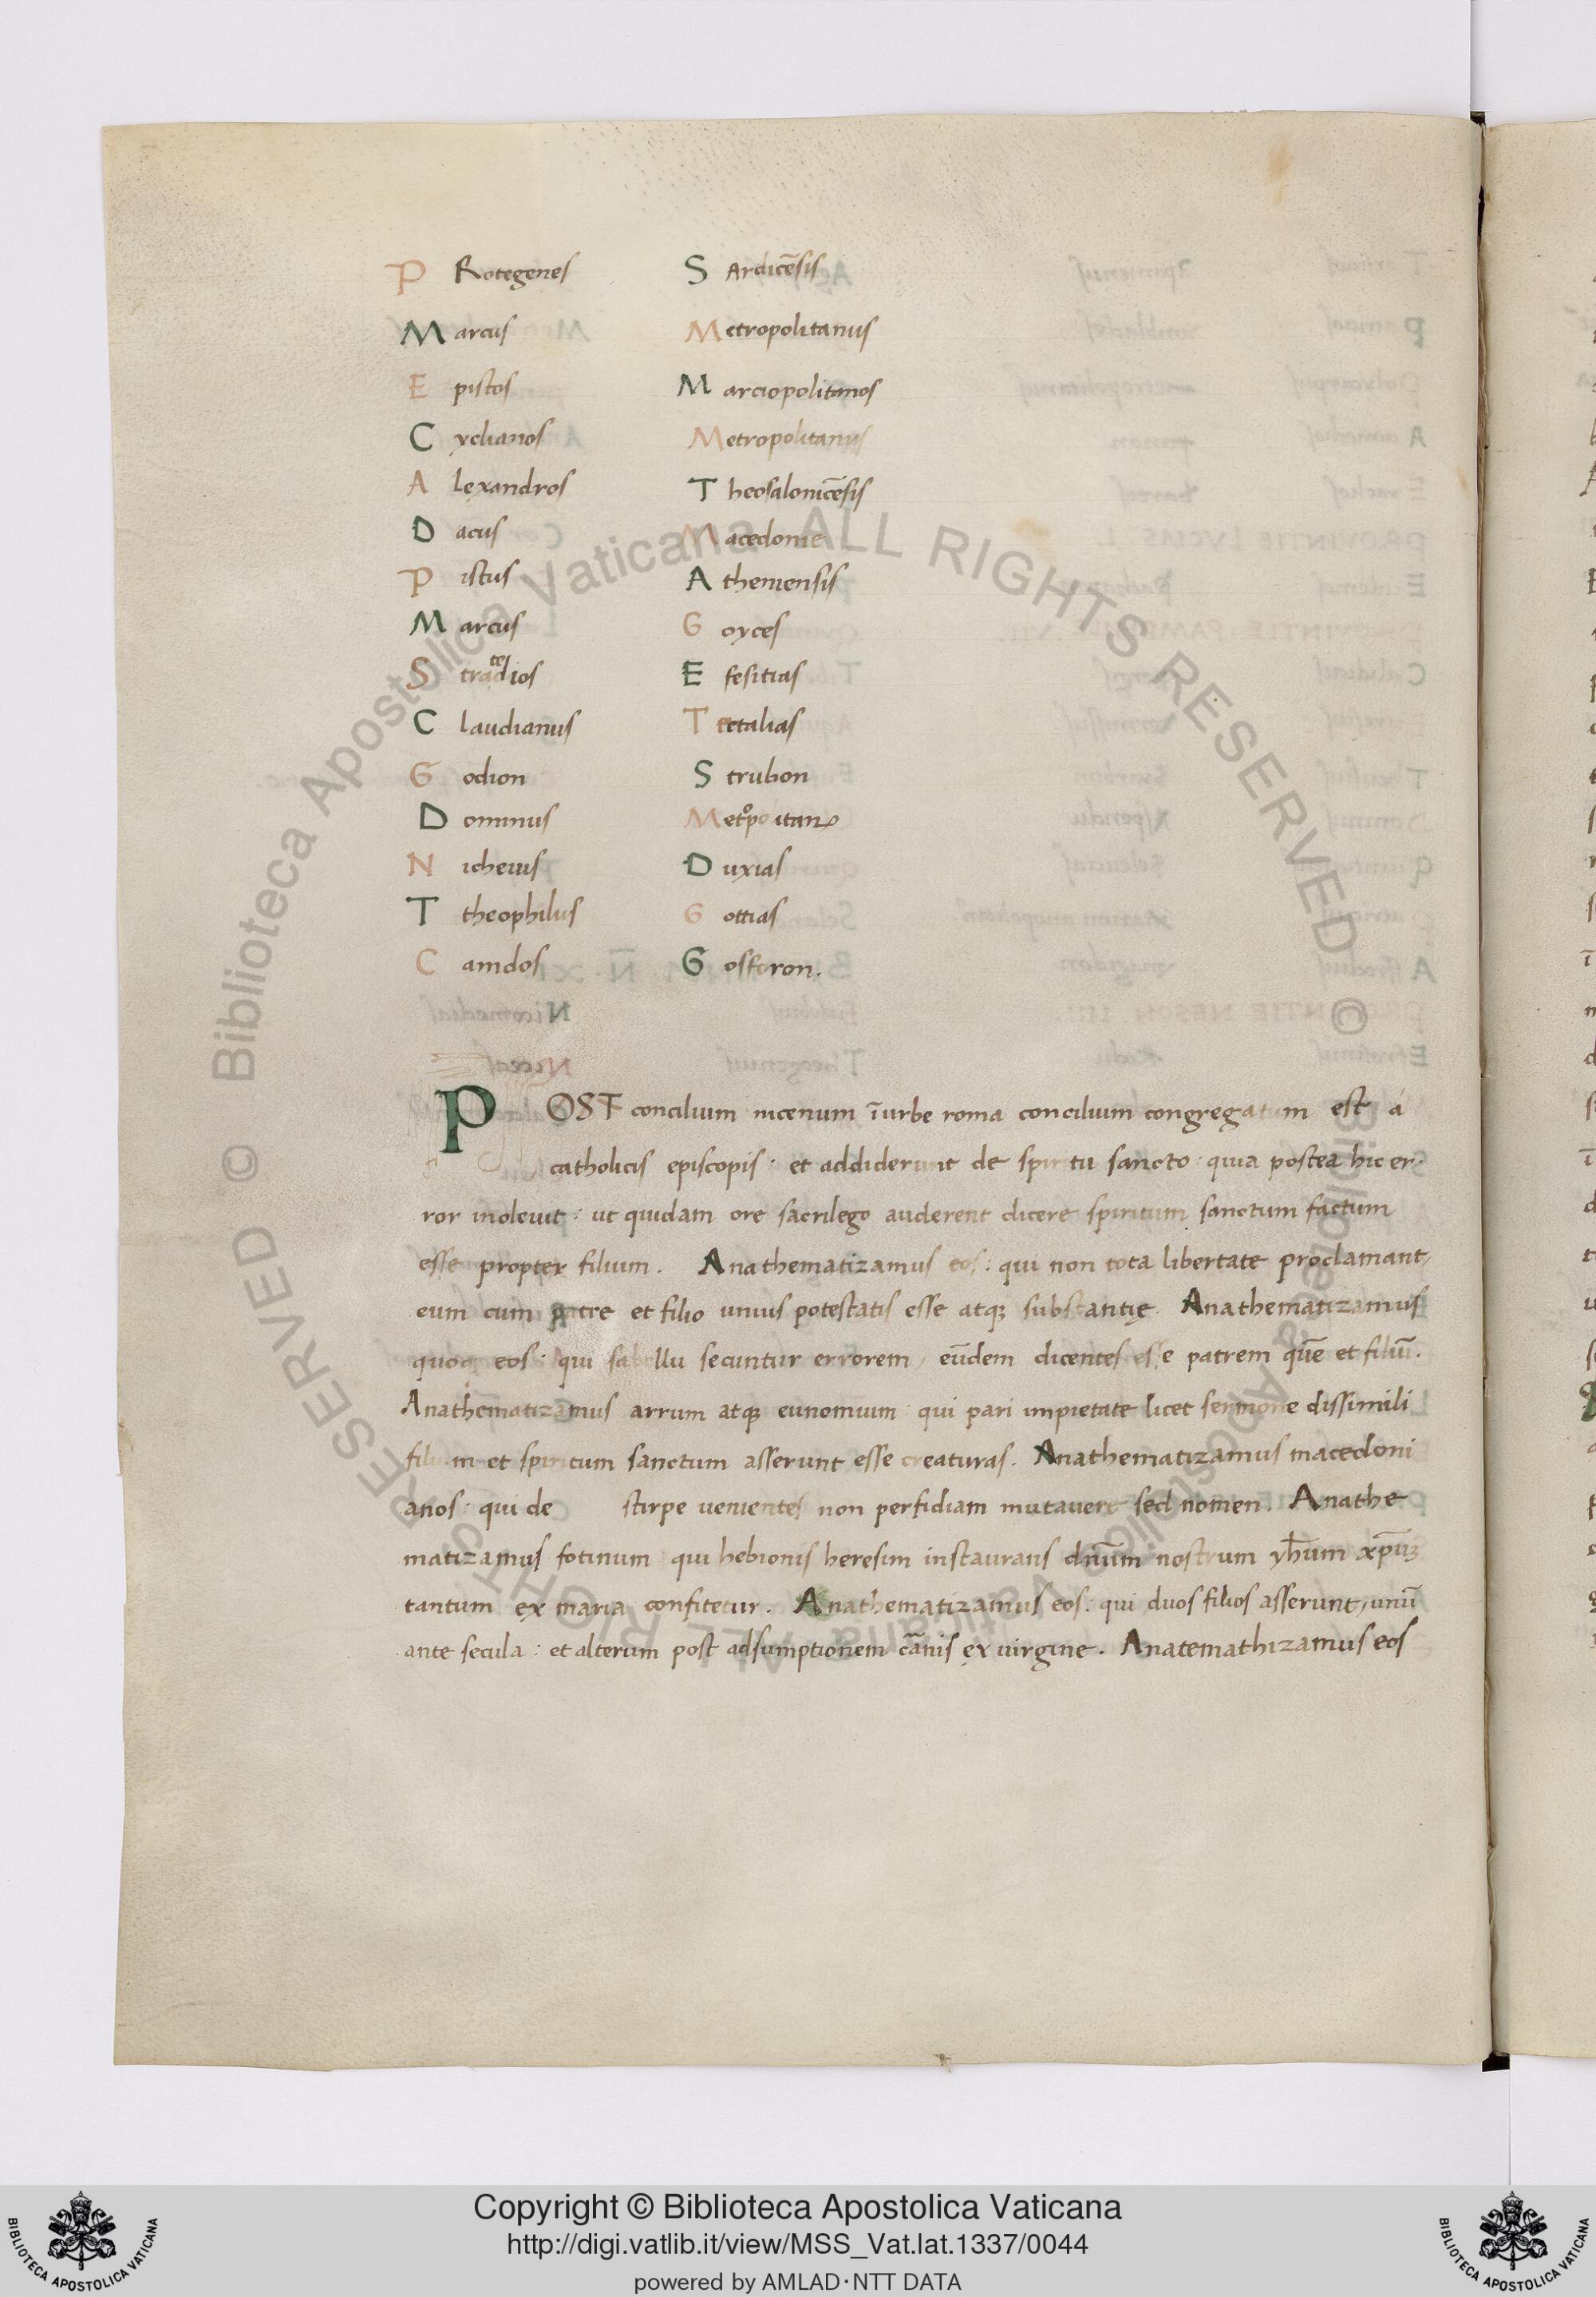 P Rotegenes S Ardicēsis
M arcus M etropolitanus
E pistos M arciopolitanos
C yclianos M etropolitanus
A lexandros T heosalonicēsis
D acus M acedonie
P istus A theniensis
M arcus G oyces
S E fesitias
C laudianus T
G odion S trubon
D omnus M
N icheuis D uxias
T theophilus G ottias
C amdos G osforon.
POST concilium nicenum īurbe roma concilium congregatum est a
catholicis episcopis· et addiderunt de spiritu sancto· quia postea hic er-
ror inoleuit: ut quidam ore sacrilego auderent dicere spiritum sanctum factum
esse propter filium. Anathematizamus eos: qui non tota libertate proclamant,
eum cum patre et filio unius potestatis esse atq; substantię. Anathematizamus
quoq; eos: qui sabellii secuntur errorem, eūdem dicentes esse patrem quē et filiū.
Anathēmatizamus arrium atq; eunomium· qui pari impietate licet sermone dissimili
filium et spiritum sanctum asserunt esse creaturas. Anathematizamus macedoni
anos: qui de stirpe uenientes non perfidiam mutauere sed nomen. Anathe
matizamus fotinum qui hebionis heresim instaurans dnūm nostrum yhum xp̄um
tantum ex maria confitetur. Anathematizamus eos: qui duos filios asserunt, unū
ante secula: et alterum post adsumptionem cānis ex uirgine. Anatemathizamus eos
Biblioteca Apostolica Vaticana ALL RIGHTS RESERVED ©
Copyright © Biblioteca Apostolica Vaticana
http://digi.vatlib.it/view/MSS_Vat.lat.1337/0044
powered by AMLAD·NTT DATA
BIBLIOTECA APOSTOLICA VATICANA
BIBLIOTECA APOSTOLICA VATICANA